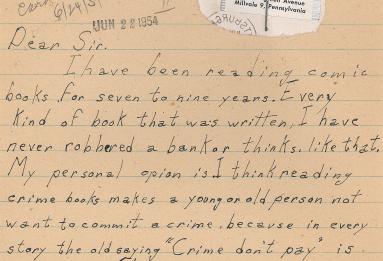 6/24/5
JUN 22 1954
Avenue
Millvale 9, Pennsylvania
Dear Sir.
I have been reading comic
books for seven to nine years. Every
kind of book that was written, I have
never robbered a bank or thinks. like that.
My personal opion is I think reading
crime books makes a young or old person not
want to commit a crime. because in every
story the old saying "Crime don't pay" is